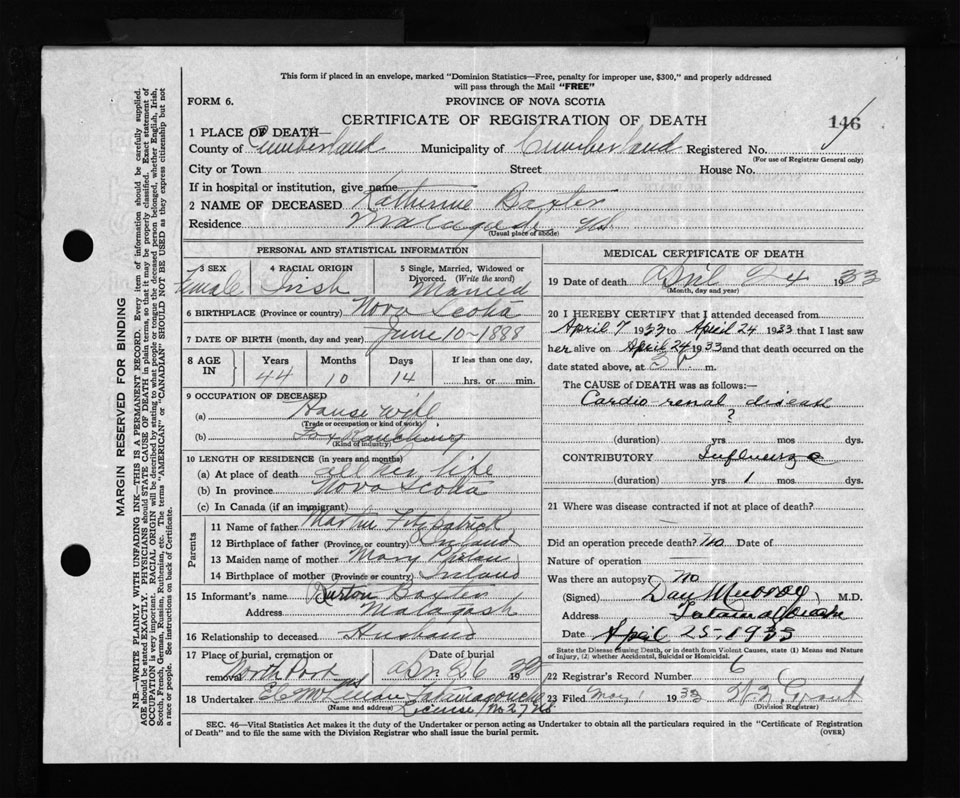 This form if placed in an envelope, marked "Dominion Statistics—Free, penalty for improper use, $300," and properly addressed
will pass through the Mail "FREE"
FORM 6.
PROVINCE OF NOVA SCOTIA
CERTIFICATE OF REGISTRATION OF DEATH
146
1 PLACE OF DEATH—
County of Cumberland Municipality of Cumberland Registered No.
(For use of Registrar General only)
City or Town Street House No.
If in hospital or institution, give name
2 NAME OF DECEASED Katherine Baxter
Residence NS
(Usual place of abode)
PERSONAL AND STATISTICAL INFORMATION
3 SEX Female
4 RACIAL ORIGIN Irish
5 Single, Married, Widowed or Divorced. (Write the word) Married
6 BIRTHPLACE (Province or country) Nova Scotia
7 DATE OF BIRTH (month, day and year) June 10-1888
8 AGE IN
Years Months Days If less than one day,
44 10 14 hrs. or min.
9 OCCUPATION OF DECEASED
(a) House wife
(Trade or occupation or kind of work)
(b) Fox Ranching
(Kind of industry)
10 LENGTH OF RESIDENCE (in years and months)
(a) At place of death all her life
(b) In province Nova Scotia
(c) In Canada (if an immigrant)
Parents
11 Name of father Martin Fitzpatrick
12 Birthplace of father (Province or country) Ireland
13 Maiden name of mother Mary Phelan
14 Birthplace of mother (Province or country) Ireland
15 Informant's name Burton Baxter
Address Malagash
16 Relationship to deceased Husband
17 Place of burial, cremation or removal Date of burial
North Port Apr 26 19
18 Undertaker Tatamagouche
(Name and address) License No 27 NS
MEDICAL CERTIFICATE OF DEATH
19 Date of death April 24 1933
(Month, day and year)
20 I HEREBY CERTIFY that I attended deceased from
April 7 1933 to April 24 1933 that I last saw
her alive on April 24 1933 and that death occurred on the
date stated above, at 3 P. m.
The CAUSE of DEATH was as follows:—
Cardio renal disease
?
(duration) yrs mos dys.
CONTRIBUTORY Influenza
(duration) yrs 1 mos. dys.
21 Where was disease contracted if not at place of death?
Did an operation precede death? no Date of
Nature of operation —
Was there an autopsy? no
(Signed) Dan Murray M.D.
Address Tatamagouche
Date April 25-1933
State the Disease Causing Death, or in death from Violent Causes, state (1) Means and
Nature of Injury, (2) whether Accidental, Suicidal or Homicidal.
22 Registrar's Record Number 6
23 Filed May 1 1933 Grant
(Division Registrar)
SEC. 46—Vital Statistics Act makes it the duty of the Undertaker or person acting as Undertaker to obtain all the particulars required in the "Certificate of Registration
of Death" and to file the same with the Division Registrar who shall issue the burial permit.
(OVER)
MARGIN RESERVED FOR BINDING
N.B.—WRITE PLAINLY WITH UNFADING INK—THIS IS A PERMANENT RECORD. Every item of information should be carefully supplied.
AGE should be stated EXACTLY. PHYSICIANS should STATE CAUSE OF DEATH in plain terms, so that it may be properly classified. Exact statement of
OCCUPATION is very important. RACIAL ORIGIN will be described by stating to what people or tongue the deceased person belonged, whether English, Irish,
Scotch, French, German, Russian, Ruthenian, etc. The terms "AMERICAN" or "CANADIAN" SHOULD NOT BE USED as they express citizenship but not
a race or people. See instructions on back of Certificate.